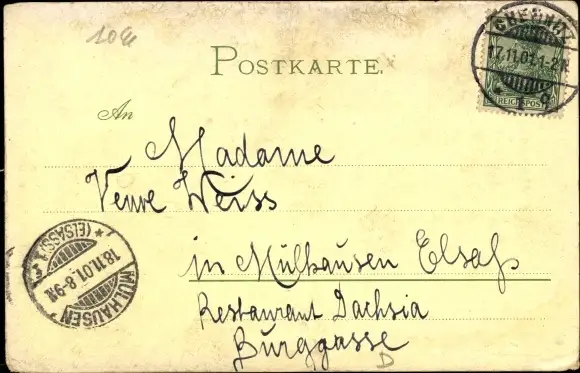 10 €
POSTKARTE.
CHEMNITZ
17.11.01.1-2N.
1
REICHSPOST
An
Madame
Veuve Weiss
in Mülhausen Elsaß
Restaurant Dachsia
Burggasse
D
MÜLHAUSEN
18.11.01.8-9N.
* (ELSASS) 1 *